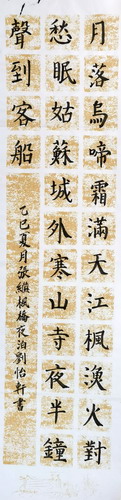 月落烏啼霜滿天江楓漁火對
愁眠姑蘇城外寒山寺夜半鐘
聲到客船
乙巳夏月張繼楓橋夜泊劉怡軒書